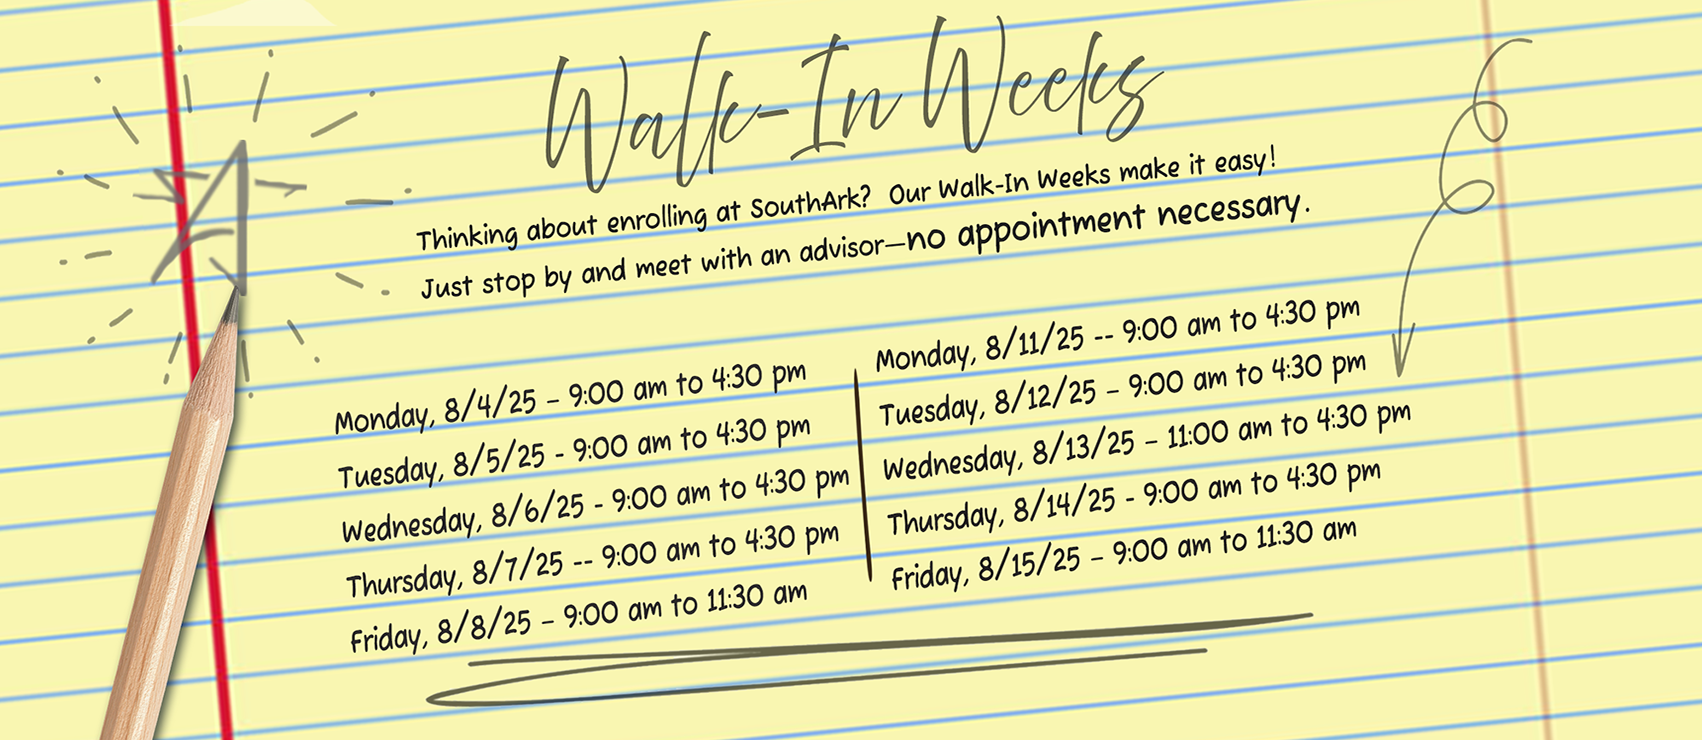 Walk-In Weeks
Thinking about enrolling at SouthArk?  Our Walk-In Weeks make it easy!
Just stop by and meet with an advisor—no appointment necessary.
Monday, 8/4/25 – 9:00 am to 4:30 pm
Tuesday, 8/5/25 - 9:00 am to 4:30 pm
Wednesday, 8/6/25 - 9:00 am to 4:30 pm
Thursday, 8/7/25 -- 9:00 am to 4:30 pm
Friday, 8/8/25 – 9:00 am to 11:30 am
Monday, 8/11/25 -- 9:00 am to 4:30 pm
Tuesday, 8/12/25 – 9:00 am to 4:30 pm
Wednesday, 8/13/25 – 11:00 am to 4:30 pm
Thursday, 8/14/25 - 9:00 am to 4:30 pm
Friday, 8/15/25 – 9:00 am to 11:30 am